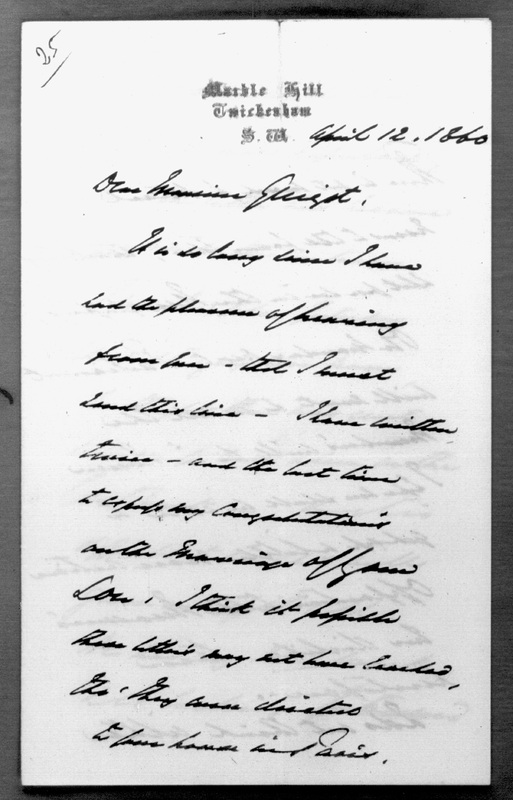 25
Marble Hill
Twickenham
S.W. April 12. 1860
Dear Monsieur Guizot,
It is so long since I have
had the pleasure of hearing
from you - that I must
send this line - I have written
twice - and the last time
to express my Congratulations
on the Marriage of your
Son. I think it possible
these letters may not have reached,
tho' they were directed
to your house in Paris.